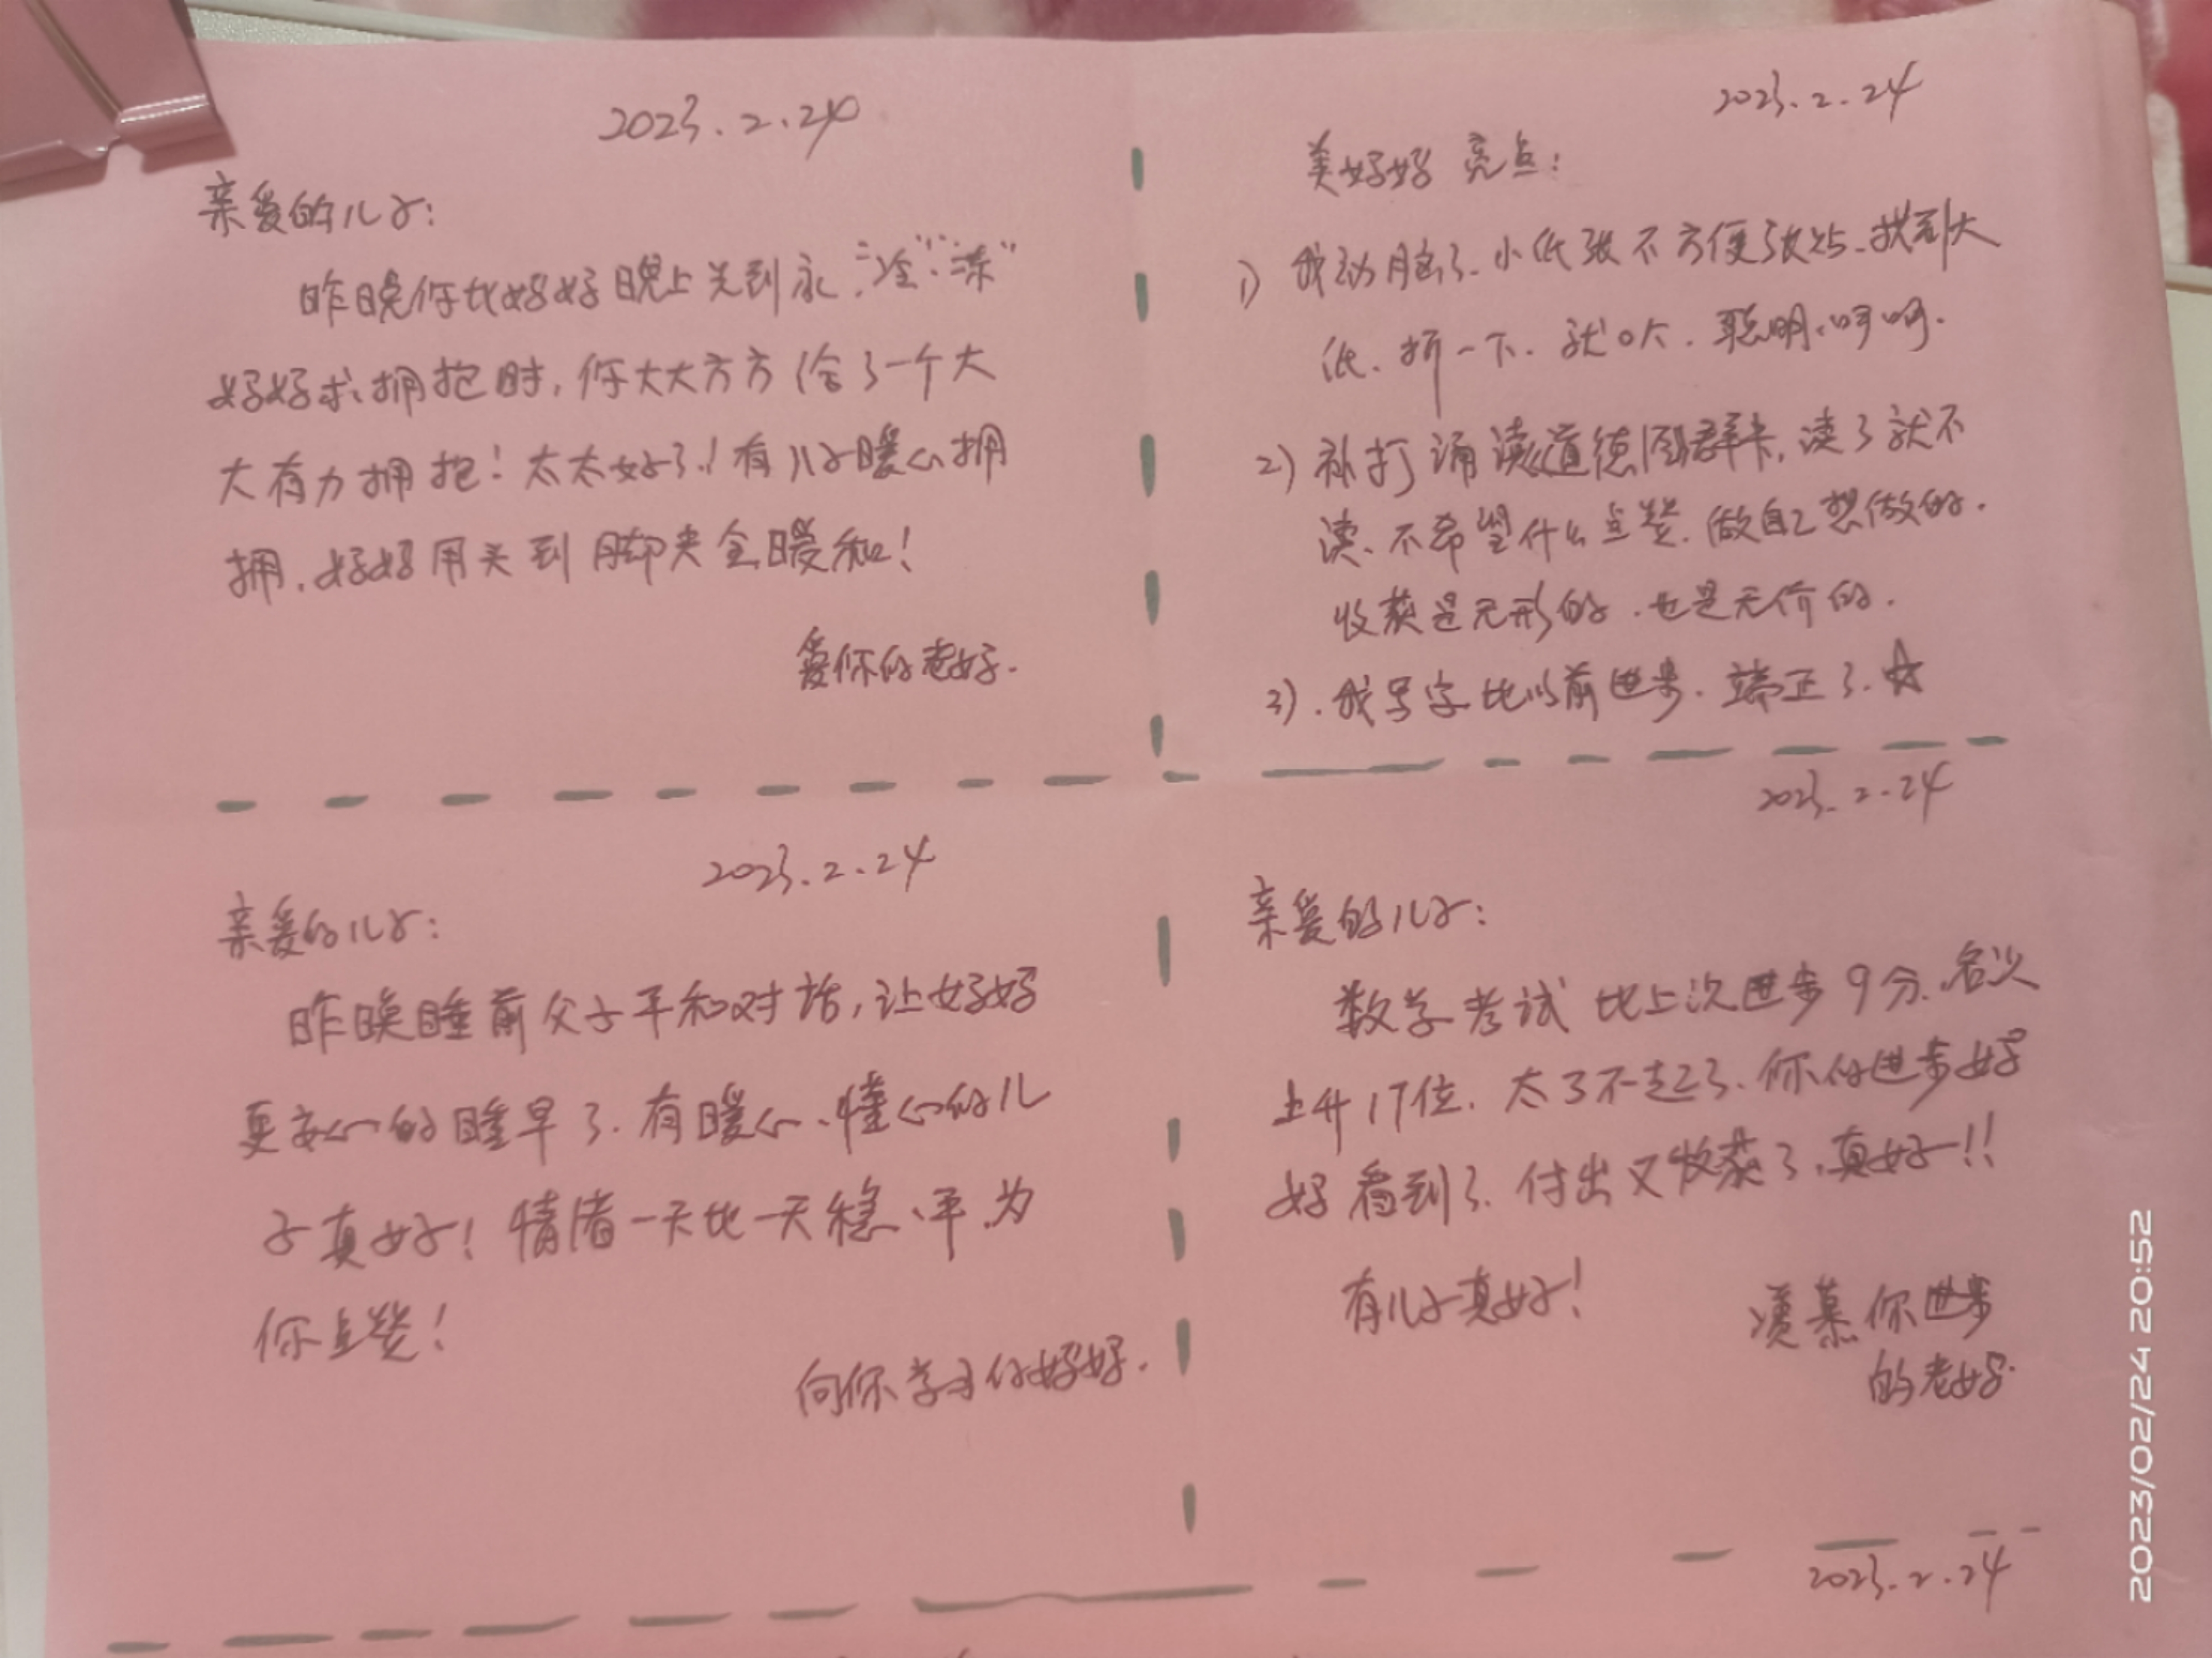 2023.2.24
亲爱的儿子:
昨晚你比好好晚上关到永,"冷""冻"
好好求拥抱时,你大大方方给了一个大
大有力拥抱!太太好了!有儿子暖心拥
拥.好好用头到脚夹全暖和!
爱你的老好.
2023.2.24
美好好 亮点:
1) 我动脑了.小纸张不方便张贴.找到大
纸.折一下.就OK.聪明.呵呵.
2) 补打诵读道德 群卡,读了就不
读、不希望什么点赞.做自己想做的.
收获是无形的.也是无价的.
3).我写字比以前进步.端正了.☆
2023.2.24
亲爱的儿子:
昨晚睡前父子平和对话,让好好
更安心的睡早了.有暖心、懂心的儿
子真好!情绪一天比一天稳、平.为
你点赞!
向你学习的好好.
2023.2.24
亲爱的儿子:
数学考试比上次进步9分.名次
上升17位.太了不起了.你的进步好
好看到了.付出又收获了.真好!!
有儿子真好!
羡慕你进步
的老好.
2023.2.24
2023/02/24 20:52